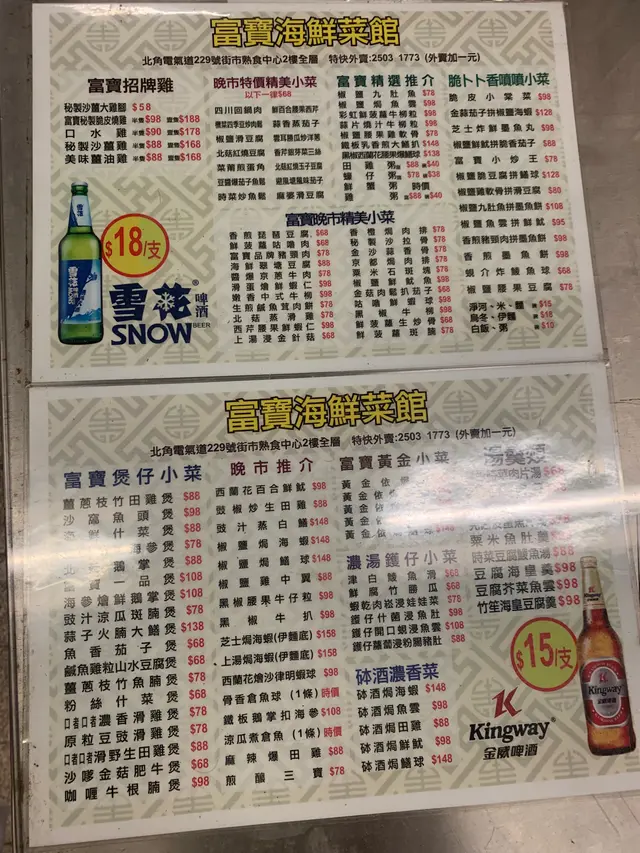 富寶海鮮菜館
北角電氣道229號街市熟食中心2樓全層 特快外賣:2503 1773 (外賣加一元)
富寶招牌雞
秘製沙薑大雞腳 $58
富寶秘製脆皮燒雞 半隻$98 壹隻$188
口水雞 半隻$90 壹隻$178
秘製沙薑雞 半隻$88 壹隻$168
美味薑油雞 半隻$88 壹隻$168
$18/支
雪花啤酒
SNOW BEER
晚市特價精美小菜
以下一律$68
四川回鍋肉 鮮百合腰果西芹
欖菜四季豆炒肉鬆 蒜香蒸茄子
椒鹽滑豆腐 雲耳勝瓜炒洋蔥
北菇紅燒豆腐 香芹銀芽菜三絲
菜甫煎蛋角 北菇紅燒玉子豆腐
豆醬爆茄子魚鬆 避風塘風味茄子
時菜炒魚鬆 麻婆滑豆腐
富寶精選推介
椒鹽九肚魚 $78
椒鹽焗魚雲 $98
彩虹鮮菠蘿牛柳粒 $98
蒜片燒汁牛柳粒 $98
椒鹽腰果雞軟骨 $78
鐵板乳香煎大鱔扒 $148
黑椒西蘭花腰果爆鱔球 $138
田雞粥 $88 $40
蠔仔粥 $78 $38
鮮蟹粥 時價
雞粥 $88 $40
脆卜卜香噴噴小菜
脆皮小棠菜 $98
金蒜茄子拼椒鹽海蝦 $128
芝士炸鮮墨魚丸 $98
椒鹽鮮魷拼脆香茄子 $68
富寶小炒王 $78
椒鹽脆豆腐拼鱔球 $128
椒鹽雞軟骨拼滑豆腐 $80
椒鹽九肚魚拼墨魚餅 $108
椒鹽魚雲拼鮮魷 $95
香煎豬頸肉拼墨魚餅 $98
香煎墨魚餅 $98
蜆介炸鯪魚球 $68
椒鹽腰果豆腐 $78
淨河、米、麵 $15
烏冬、伊麵 $18
白飯、粥 $10
富寶晚市精美小菜
香煎琵琶豆腐 $68
鮮菠蘿咕嚕肉 $68
富寶品牌豬頸肉 $78
海鮮琵琶豆腐 $88
醬爆京蔥牛肉 $78
滑蛋煨鮮蝦仁 $98
嫩香中式牛柳 $98
生煎鹹魚茸肉餅 $78
北菇蒸滑雞 $78
西芹腰果鮮蝦仁 $98
上湯浸金針菇 $68
香橙焗肉排 $78
秘製沙拉骨 $78
金沙蒜香骨 $78
京都焗肉排 $78
粟米石斑塊 $78
椒鹽鮮魷魚 $98
金菇肉鬆扒茄子 $68
咕嚕鮮蝦球 $98
黑椒牛柳 $98
鮮菠蘿生炒骨 $68
鮮菠蘿斑腩 $78
富寶海鮮菜館
北角電氣道229號街市熟食中心2樓全層 特快外賣:2503 1773 (外賣加一元)
富寶煲仔小菜
薑蔥枝竹田雞煲 $88
沙窩魚頭煲 $98
什菜煲 $88
海參煲 $78
鵝掌煲 $88
寶一品煲 $108
海參燴鮮鵝掌煲 $108
豉汁涼瓜斑腩煲 $78
蒜子火腩大鱔煲 $138
魚香茄子煲 $68
鹹魚雞粒山水豆腐煲 $68
薑蔥枝竹魚腩煲 $78
粉絲什菜煲 $68
啫啫濃香滑雞煲 $78
原粒豆豉滑雞煲 $78
啫啫滑野生田雞煲 $88
沙嗲金菇肥牛煲 $68
咖喱牛根腩煲 $98
晚市推介
西蘭花百合鮮魷 $98
豉椒炒生田雞 $88
豉汁蒸白鱔 $148
椒鹽焗海蝦 $148
椒鹽焗鱔球 $148
椒鹽雞中翼 $88
黑椒腰果牛仔粒 $98
黑椒牛扒 $98
芝士焗海蝦(伊麵底) $158
上湯焗海蝦(伊麵底) $158
西蘭花燴沙律明蝦球 $98
骨香倉魚球(1條) 時價
鐵板鵝掌扣海參 $108
涼瓜煮倉魚(1條) 時價
麻辣爆田雞 $88
煎釀三寶 $78
富寶黃金小菜
黃金
黃金
黃金
黃金
濃湯鑊仔小菜
津白鯪魚滑 $68
鮮腐竹勝瓜 $68
蝦乾肉崧浸娃娃菜 $78
鑊仔什菌浸魚肚 $98
鑊仔開口蜆浸魚雲 $108
鑊仔蘿蔔浸粉腸豬肚 $88
砵酒濃香菜
砵酒焗海蝦 $148
砵酒焗魚雲 $98
砵酒焗田雞 $88
砵酒焗鮮魷 $98
砵酒焗鱔球 $148
湯羹類
肉片湯 $68
粟米魚肚羹 $88
時菜豆腐鯪魚滑 $88
豆腐海皇羹 $98
豆腐芥菜魚雲 $98
竹笙海皇豆腐羹 $98
$15/支
Kingway®
金威啤酒